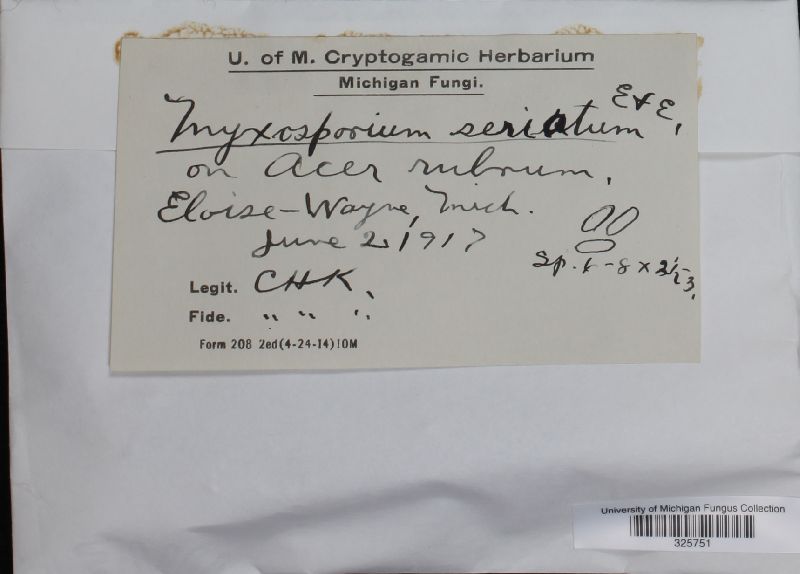 U. of M. Cryptogamic Herbarium
Michigan Fungi.
Myxosporium seriatum E & E.
on Acer rubrum,
Eloise-Wayne, Mich.
June 2, 1917
Sp. 6-8 x 2½-3.
Legit. CHK.
Fide. " " "
Form 208 2ed(4-24-14)10M
University of Michigan Fungus Collection
325751